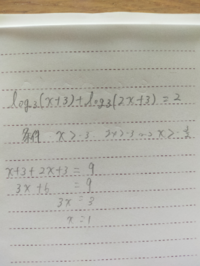 log₃(x+3)+log₃(2x+3)=2
x>-3 2x>-3 x>-
x+3+2x+3=9
3x+6 =9
3x=3
x=1